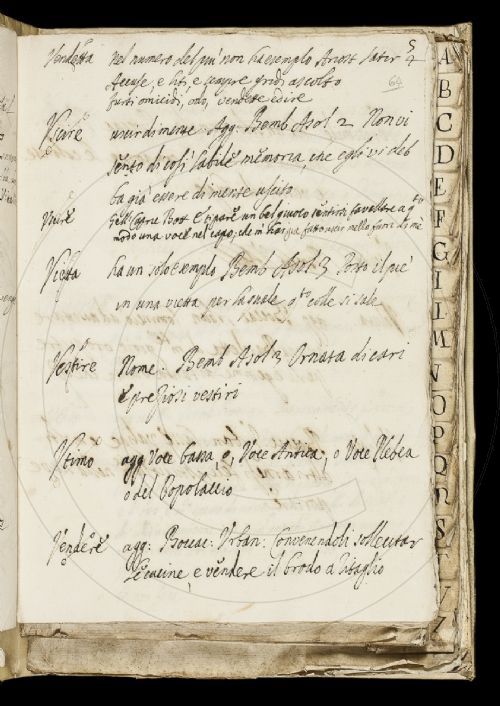 Vendetta nel numero del più non ha esempio Ariost Satir 5
Accuse, e liti, e sempre gridi ascolto 64
furti omicidi, odio, vendette ed ire
uscir di mente Agg: Bemb Asol 2 Non vi
sento di così labile memoria, che egli vi deb
ba già essere di mente uscito
Bocc E pare un bel giuoco
modo una voce nel capo; che m'ha
ha un solo esempio Bemb Asol 3 Posto il piè
in una vietta per la quale qto colle si sale
Vestire Nome. Bemb Asol 3 Ornata di cari
e preziosi vestiri
Vtimo agg Voce bassa, e, Voce Antica, o Voce Plebea
o del Popolaccio
Vendere agg: Boccac: Vrban: Convenendoli sollecitar
le cucine, e vendere il brodo a ritaglio
A
B
C
D
E
F
G
I
L
M
N
O
P
Q
R
S
T
V
Z